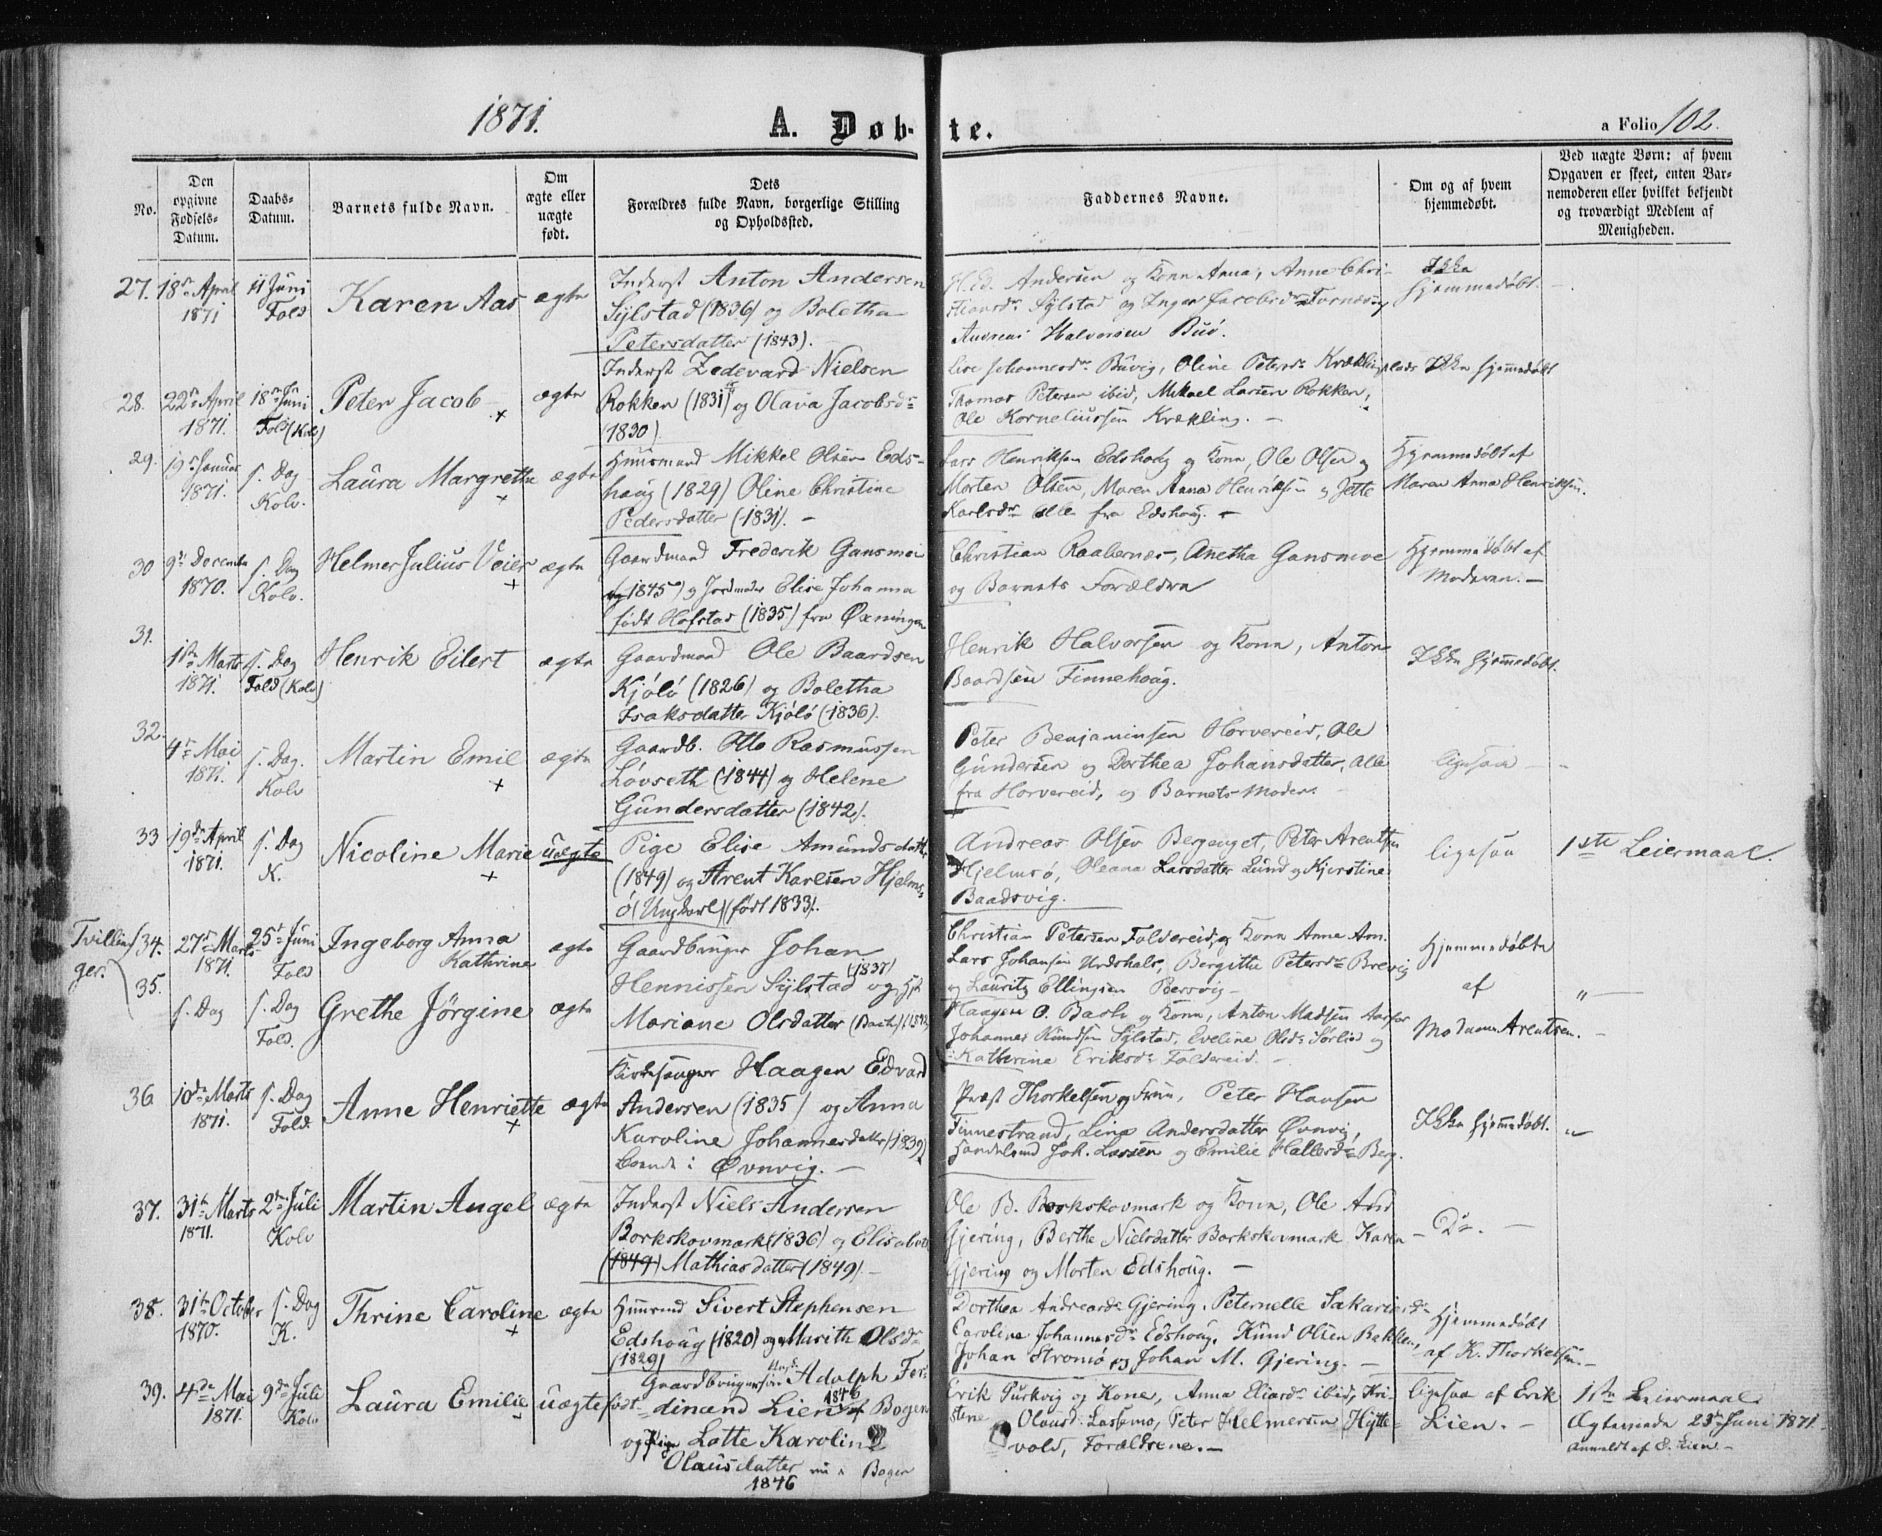 1871.
A. Døb-
te.
a Folio 102.
No.
Den opgivne Fødsels-Datum.
Daabs-Datum.
Barnets fulde Navn.
Om ægte eller uægte født.
Dets Forældres fulde Navn, borgerlige Stilling og Opholdssted.
Faddernes Navne.
Om og af hvem hjemmedøbt.
Ved uægte Børn: af hvem Opgaven er skeet, enten Barnemoderen eller hvilket bekjendt og troværdigt Medlem af Menigheden.
27. 18de April 1871
11 Juni Fold
Karen Aas
ægte
Inderst Anton Andersen
Sylstad (1836) og Boletha
Petersdatter (1843).
Andersen og Kone Anna, Anne Chri-
Sylstad og Inger Jacobsdr
Halvorsen Buö.
Ikke hjemmedøbt.
28. 22de April 1871.
18de Juni Fold (Kolv)
Peter Jacob
ægte
Inderst Zedevard Nielsen
Rokken (1831) og Olava Jacobsdr
(1830)
Johannesdr Buvig, Oline Petersdr
Thomas Petersen ibid, Mikael Larsen Rokken,
Ole Korneliussen Krækling. -
Ikke hjemmedøbt
29. 19de Januar 1871.
s. Dag Kolv.
Laura Margrethe
ægte
Huusmand Mikkel Olsen Eds-
houg (1829) Oline Christine
Pedersdatter (1831). -
Lars Henriksen Edshoug og Kone, Ole Olsen og
Morten Olsen, Maren Anna Henriksen og Jette
Karlsdr alle fra Edshoug. -
Hjemmedøbt af
Maren Anna Henriksen.
30 9de December 1870.
s. Dag Kolv.
Helmer Julius Veier
ægte
Gaardmand Frederik Gansmoe
(1845) og Jordmoder Elise Johanna
født Hofstad (1835) fra Øxningen
Christian Raabernæs, Anetha Gansmoe
og Barnets Forældre
Hjemmedøbt af
Moderen. -
31. 11te Marts 1871.
s. Dag Fold (Kolv)
Henrik Eilert
ægte
Gaardmand Ole Baardsen
Kjölö (1826) og Boletha
Isaksdatter Kjölö (1836).
Henrik Halvorsen og Kone, Anton
Baardsen Finnehoug.
Ikke hjemmedøbt.
32. 4de Mai 1871.
s. Dag. Kolv
Martin Emil
ægte
Gaardb. Otto Rasmussen
Løvseth (1844) og Helene
Gundersdatter (1842).
Peter Benjaminsen Horvereid, Ole
Gundersen og Dorthea Johansdatter, Alle
fra Horvereid, og Barnets Moder.
ligesaa -
33 19de April 1871.
s. Dag K.
Nicoline Marie
uægte
Pige Elise Amundsdatter
(1849) og Arent Karlsen Hjelms-
ö (Ungkarl) (født 1833).
Andreas Olsen Bergenget, Peter Arentsen
Hjelmsö, Oleana Larsdatter Lund og Kjerstine
Baadsvig.
ligesaa
1ste Leiermaal.
Tvillin-
ger.
34. 27de Marts 1871.
25de Juni Fold
Ingeborg Anna
Kathrine
ægte
Gaardbruger Johan
Hennissen Sylstad (1837) og
Mariane Olsdatter (Bach)
Christian Petersen Foldereid og Kone Anne Am.
Lars Johansen Urdshals, Bergithe Petersdr Brevig
og Lauritz Ellingsen
Hjemmedøbte
af
"
35. s. Dag
s. Dag Fold.
Grethe Jørgine
ægte
Haagen O. Bach og Kone, Anton Madsen
Johannes Knudsen Sylstad, Eveline Olsdr Sørlie og
Katherine Eriksdr Foldereid. -
Madame Arentsen. -
36 10de Marts 1871.
s. Dag Fold.
Anne Henriette
ægte
Kirkesanger Haagen Edvard
Andersen (1835) og Anna
Karoline Johannesdatter (1839)
boende i Øvnvig. -
Præst Thorkelsen og Frue, Peter Hansen
Finnestrand, Lina Andersdatter Øvnvig,
Joh. Larsen og Emilie Hallesdr Berg.
Ikke hjemmedøbt.
"
37. 31te Marts 1871.
2den Juli Kolv
Martin Angel
ægte
Inderst Niels Andersen
Borkskovmark (1836) og Elisabet
(1849) Mathiasdatter (1849). -
Ole B. Borkskovmark og Kone, Ole And
Gjering, Berthe Nielsdatter Borkskovmark Karen
Gjering og Morten Edshoug. -
Do. -
38. 31te October 1870.
s. Dag K.
Thrine Caroline
ægte
Huusmd Sivert Stephensen
Edshoug (1820) og Marith Olsdr
(1829)
Dorthea Andreasdr Gjering, Peternelle Sakariasdr
Caroline Johannesdr Edshoug, Knud Olsen Bakken,
Johan Strömö og Johan M. Gjering. -
Hjemmedøbt
af K. Thorkelsen. -
39. 4de Mai 1871.
9de Juli Kolv
Laura Emilie
uægte født
Gaardbrugersön Adolph Fer-
dinand Lien 1846 af Bogen
og Pige Lotte Karoline
Olausdatter nu i Bogen
1846
Erik Purkvig og Kone, Anna Eliasdr ibid, Kri-
stene Olausd. Lassemo, Peter Helmersen Hytte-
vold, Forældrene. -
ligesaa af Erik
Lien. -
1ste Leiermaal
Ægteviede 23de Juni 1871
Anmeldt af E. Lien -